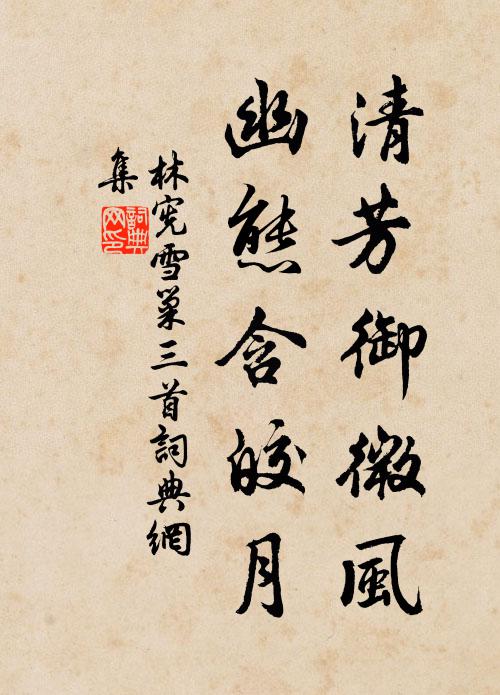 清芳御微風
幽態含皎月
林宪雪巢三首詞典網
集
詞典網印